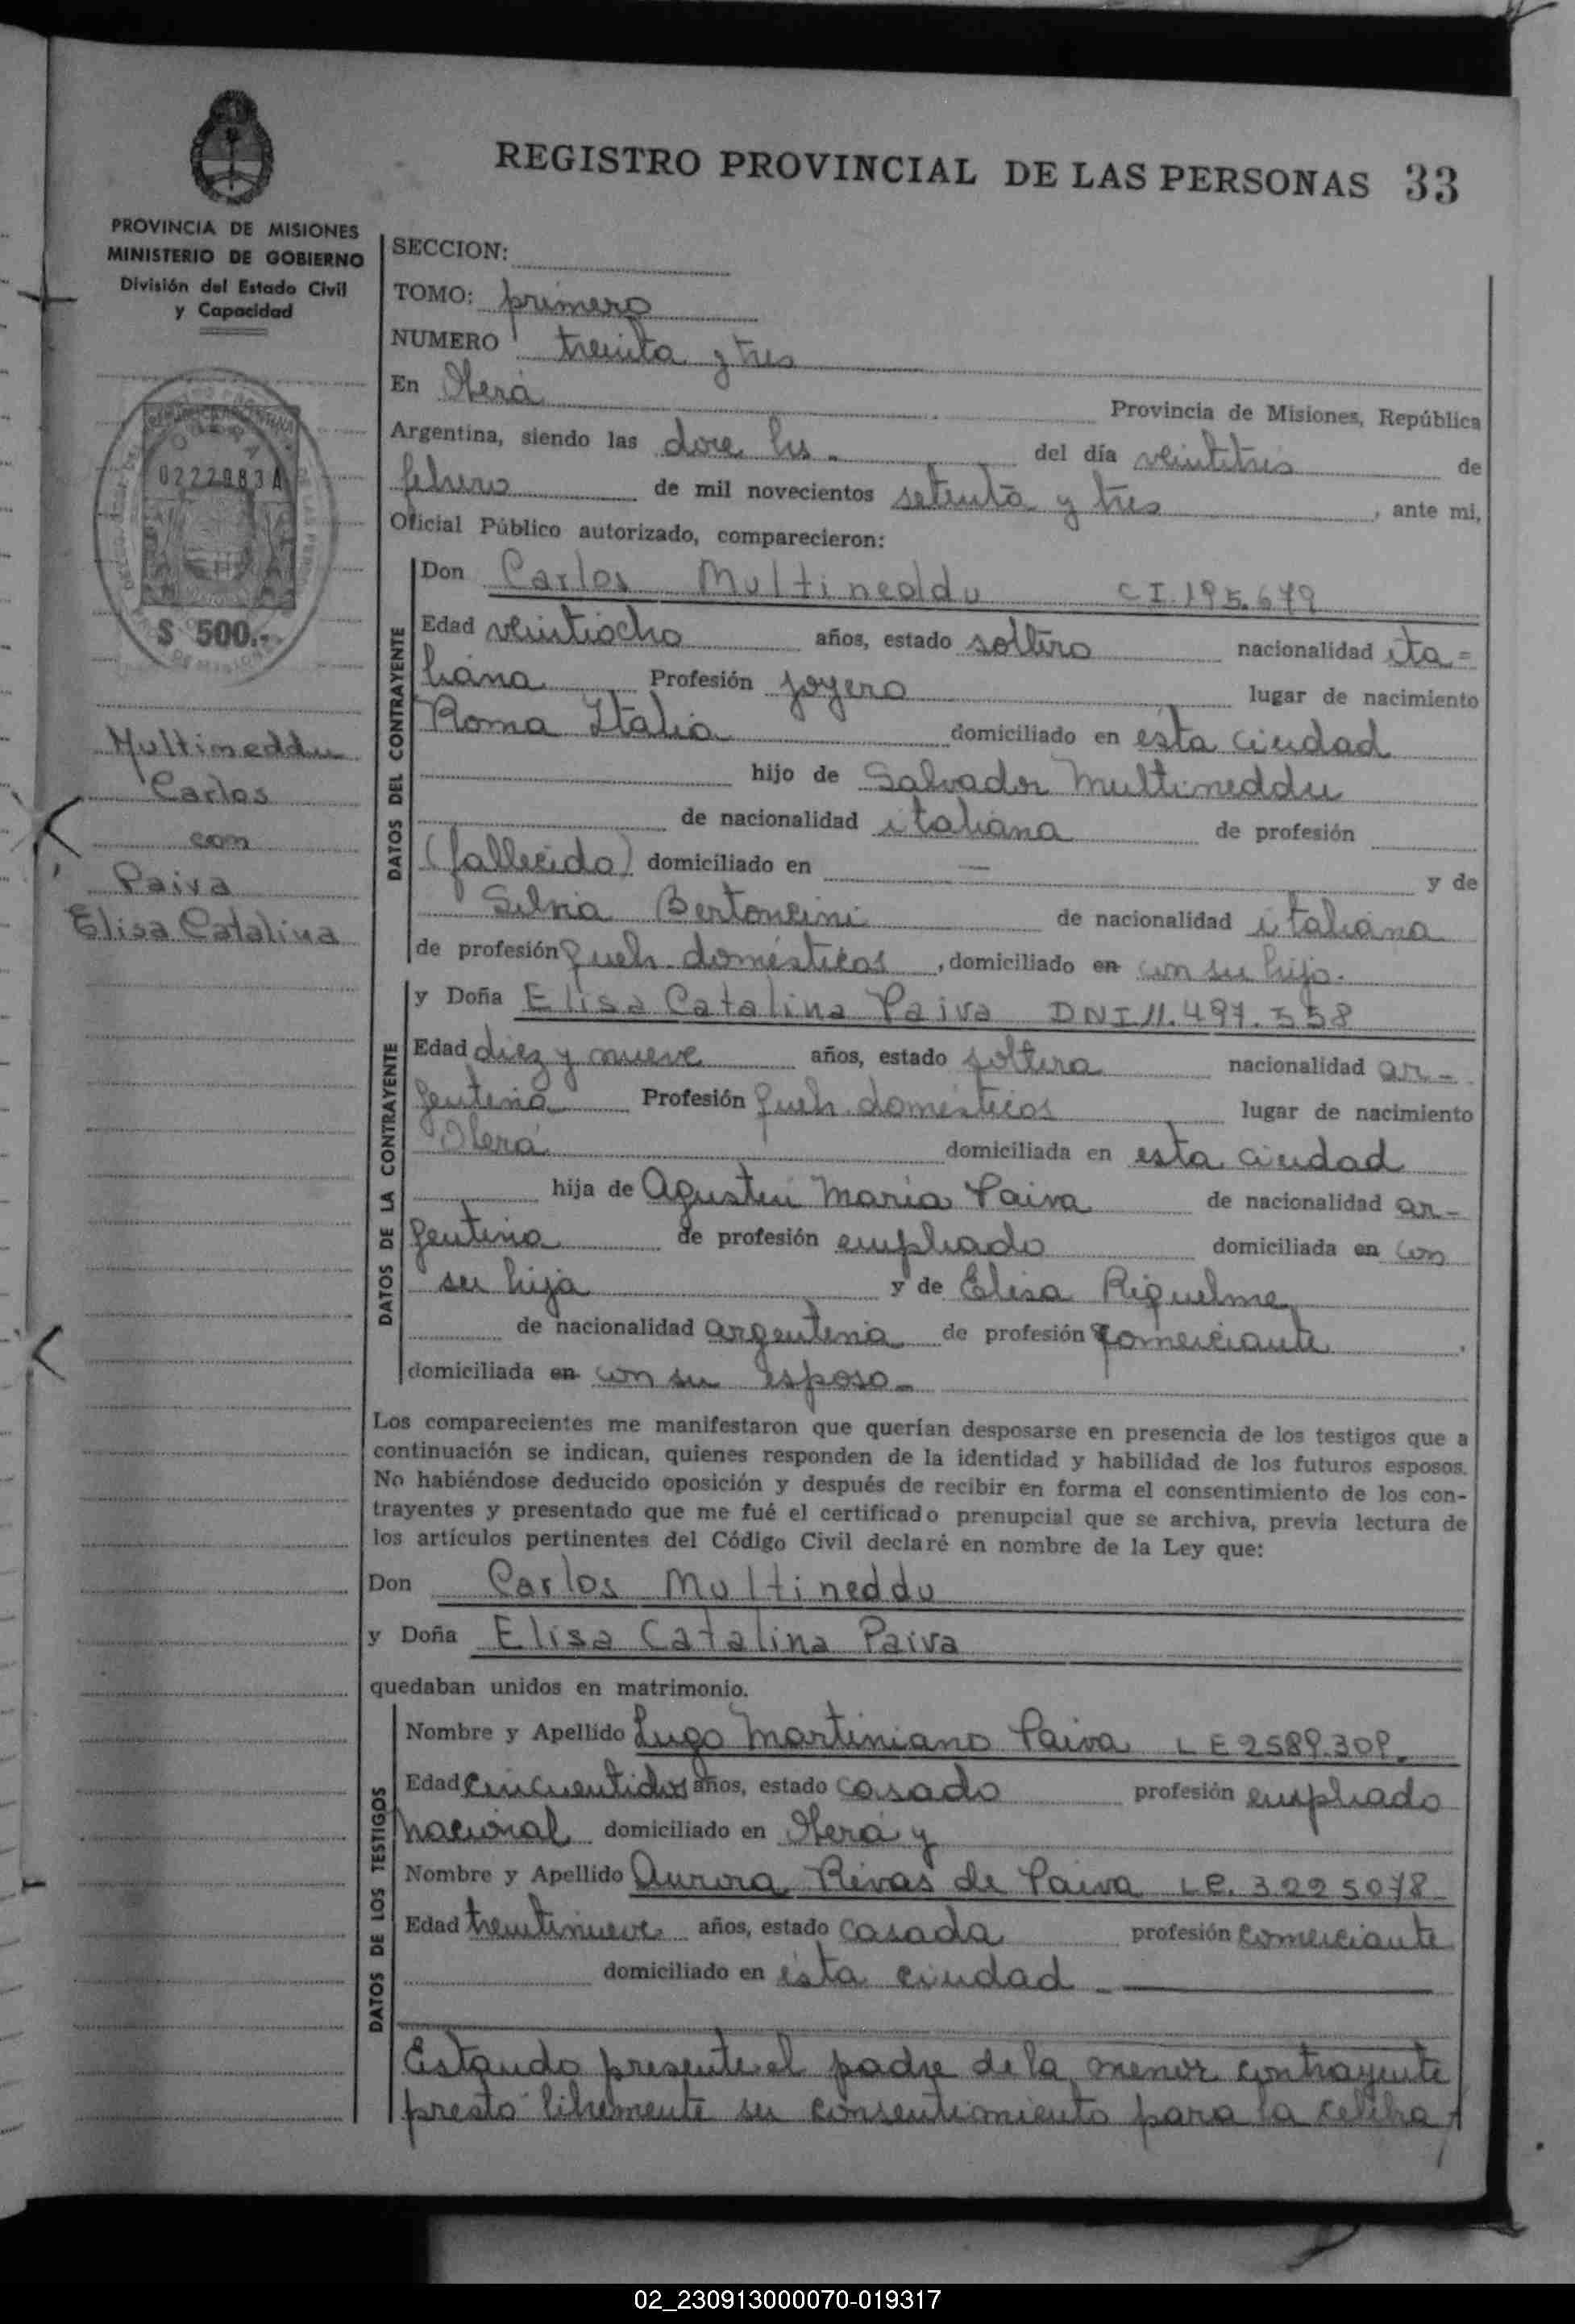 REGISTRO PROVINCIAL DE LAS PERSONAS 33
PROVINCIA DE MISIONES
MINISTERIO DE GOBIERNO
División del Estado Civil
y Capacidad
0222983A
$ 500.-
Multineddu
Carlos
con
Paiva
Elisa Catalina
SECCION:
TOMO: primero
NUMERO treinta y tres
En Oberá Provincia de Misiones, República
Argentina, siendo las doce hs. del día veintitrés de
febrero de mil novecientos setenta y tres, ante mi,
Oficial Público autorizado, comparecieron:
DATOS DEL CONTRAYENTE
Don Carlos Multineddu CI.195.679
Edad veintiocho años, estado soltero nacionalidad ita=
liana Profesión joyero lugar de nacimiento
Roma Italia domiciliado en esta ciudad
hijo de Salvador Multineddu
de nacionalidad italiana de profesión
(fallecido) domiciliado en — y de
Silvia Bertoncini de nacionalidad italiana
de profesión queh. domésticos, domiciliado en con su hijo.
DATOS DE LA CONTRAYENTE
y Doña Elisa Catalina Paiva DNI 11.497.558
Edad diez y nueve años, estado soltera nacionalidad ar-
gentina Profesión queh. domésticos lugar de nacimiento
Oberá domiciliada en esta ciudad
hija de Agustín María Paiva de nacionalidad ar-
gentina de profesión empleado domiciliada en con
su hija y de Elisa Riquelme
de nacionalidad argentina de profesión comerciante.
domiciliada en con su esposo-
Los comparecientes me manifestaron que querían desposarse en presencia de los testigos que a
continuación se indican, quienes responden de la identidad y habilidad de los futuros esposos.
No habiéndose deducido oposición y después de recibir en forma el consentimiento de los con-
trayentes y presentado que me fué el certificado prenupcial que se archiva, previa lectura de
los artículos pertinentes del Código Civil declaré en nombre de la Ley que:
Don Carlos Multineddu
y Doña Elisa Catalina Paiva
quedaban unidos en matrimonio.
DATOS DE LOS TESTIGOS
Nombre y Apellido Lugo Martiniano Paiva LE 2589.309.
Edad cincuentidos años, estado casado profesión empleado
nacional domiciliado en Oberá y
Nombre y Apellido Aurora Rivas de Paiva LC. 3225078
Edad treintinueve años, estado casada profesión comerciante
domiciliado en ésta ciudad -
Estando presente el padre de la menor contrayente
presto libremente su consentimiento para la celebra
02_230913000070-019317